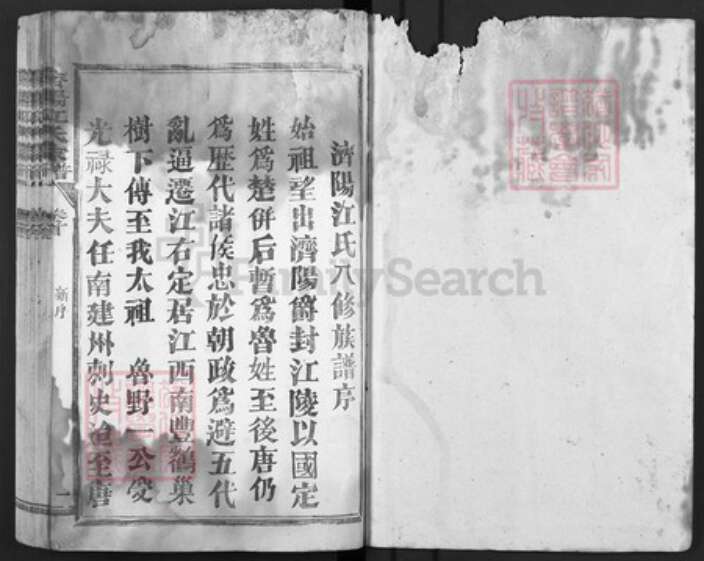 濟陽江氏八修族譜序
始祖望出濟陽爵封江陵以國定
姓爲楚併后暫爲魯姓至後唐仍
爲歴代諸侯忠於朝政爲避五代
亂逼遷江右定居江西南豐鶴巢
樹下傳至我太祖 魯野一公受
光禄大夫任南建州刺史治至唐
濟陽江氏宗譜
卷十
新序
一
FamilySearch